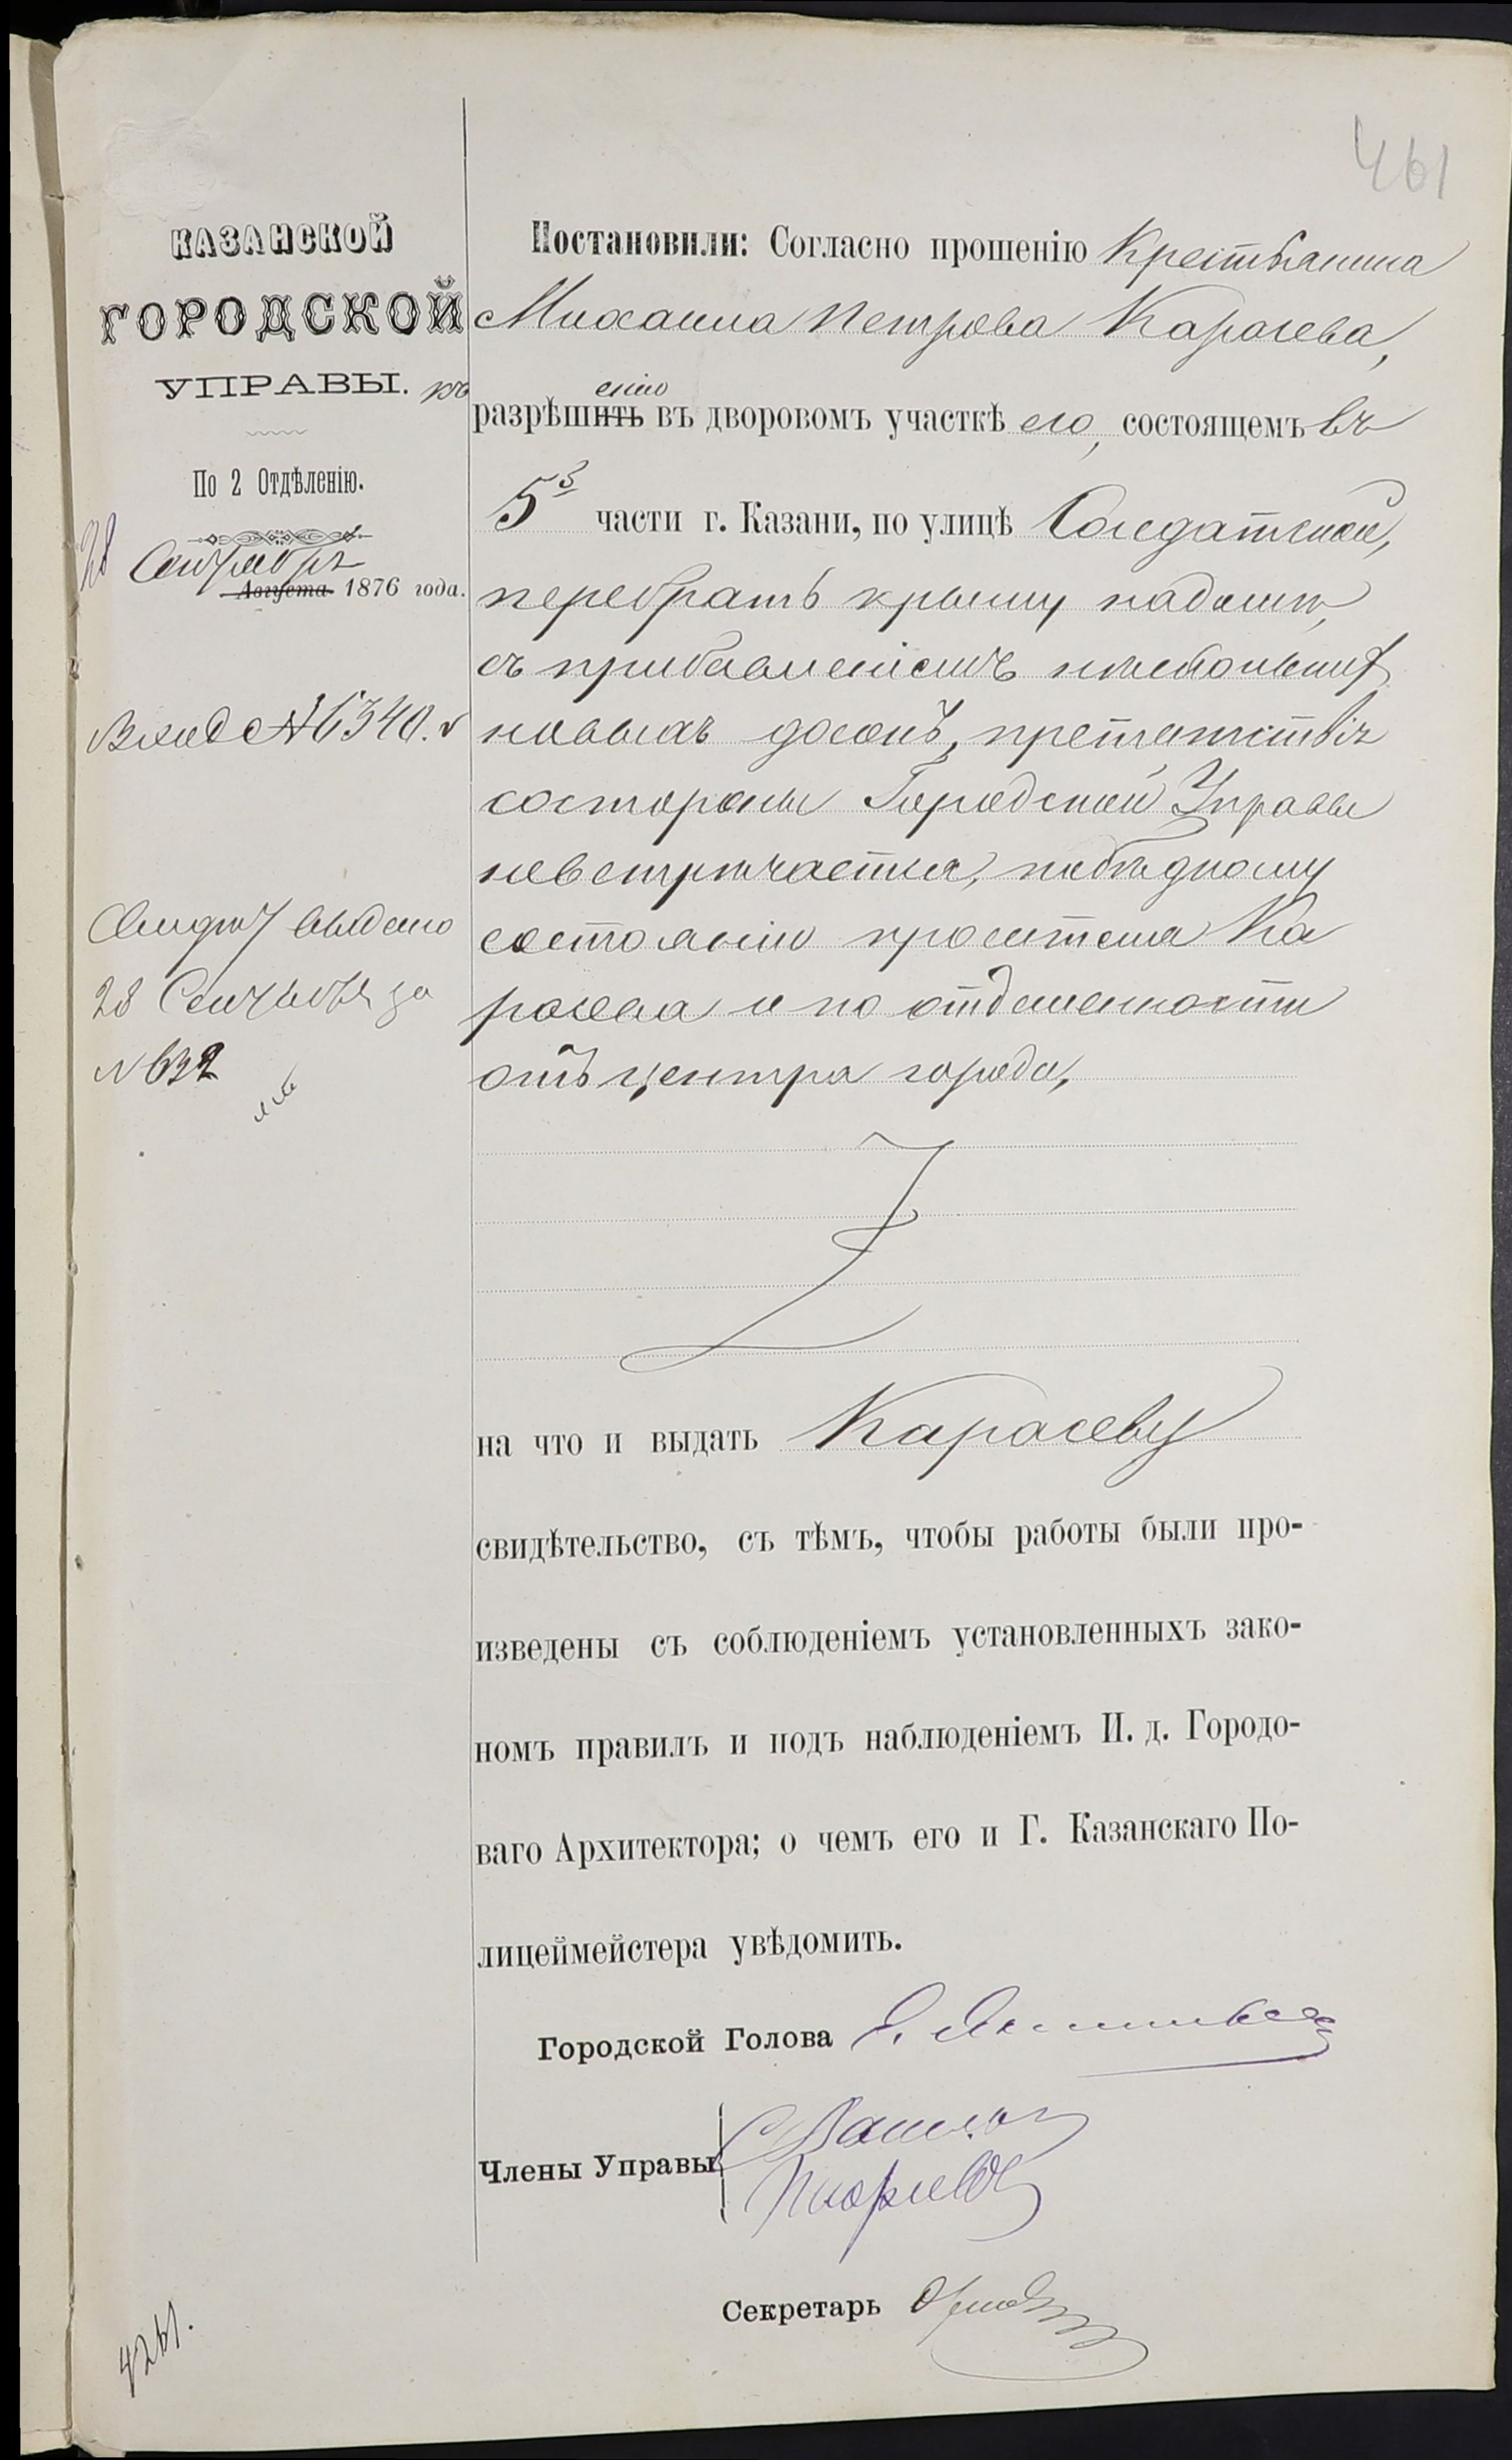 461
КАЗАНСКОЙ
ГОРОДСКОЙ
УПРАВЫ.
По 2 Отдѣленію.
28 Сентября
Августа 1876 года.
Вход №6340.
Свидѣт выдано
28 Сентября за
№632
Постановили: Согласно прошенію Крестьянина
Михаила Петрова Карасева,
къ разрѣшить енію въ дворовомъ участкѣ его, состоящемъ въ
5й части г. Казани, по улицѣ Солдатской,
перебрать крышу на домѣ,
съ прибавленіемъ нѣсколькихъ
новыхъ досокъ, препятствія
состороны Городской Управы
невстрѣчается, побѣдному
состоянію просителя Ка
расева и по отдаленности
отъ центра города,
на что и выдать Карасеву
свидѣтельство, съ тѣмъ, чтобы работы были про-
изведены съ соблюденіемъ установленныхъ зако-
номъ правилъ и подъ наблюденіемъ И. д. Городо-
ваго Архитектора; о чемъ его и Г. Казанскаго По-
лицеймейстера увѣдомить.
Городской Голова
Члены Управы
Секретарь
4261.